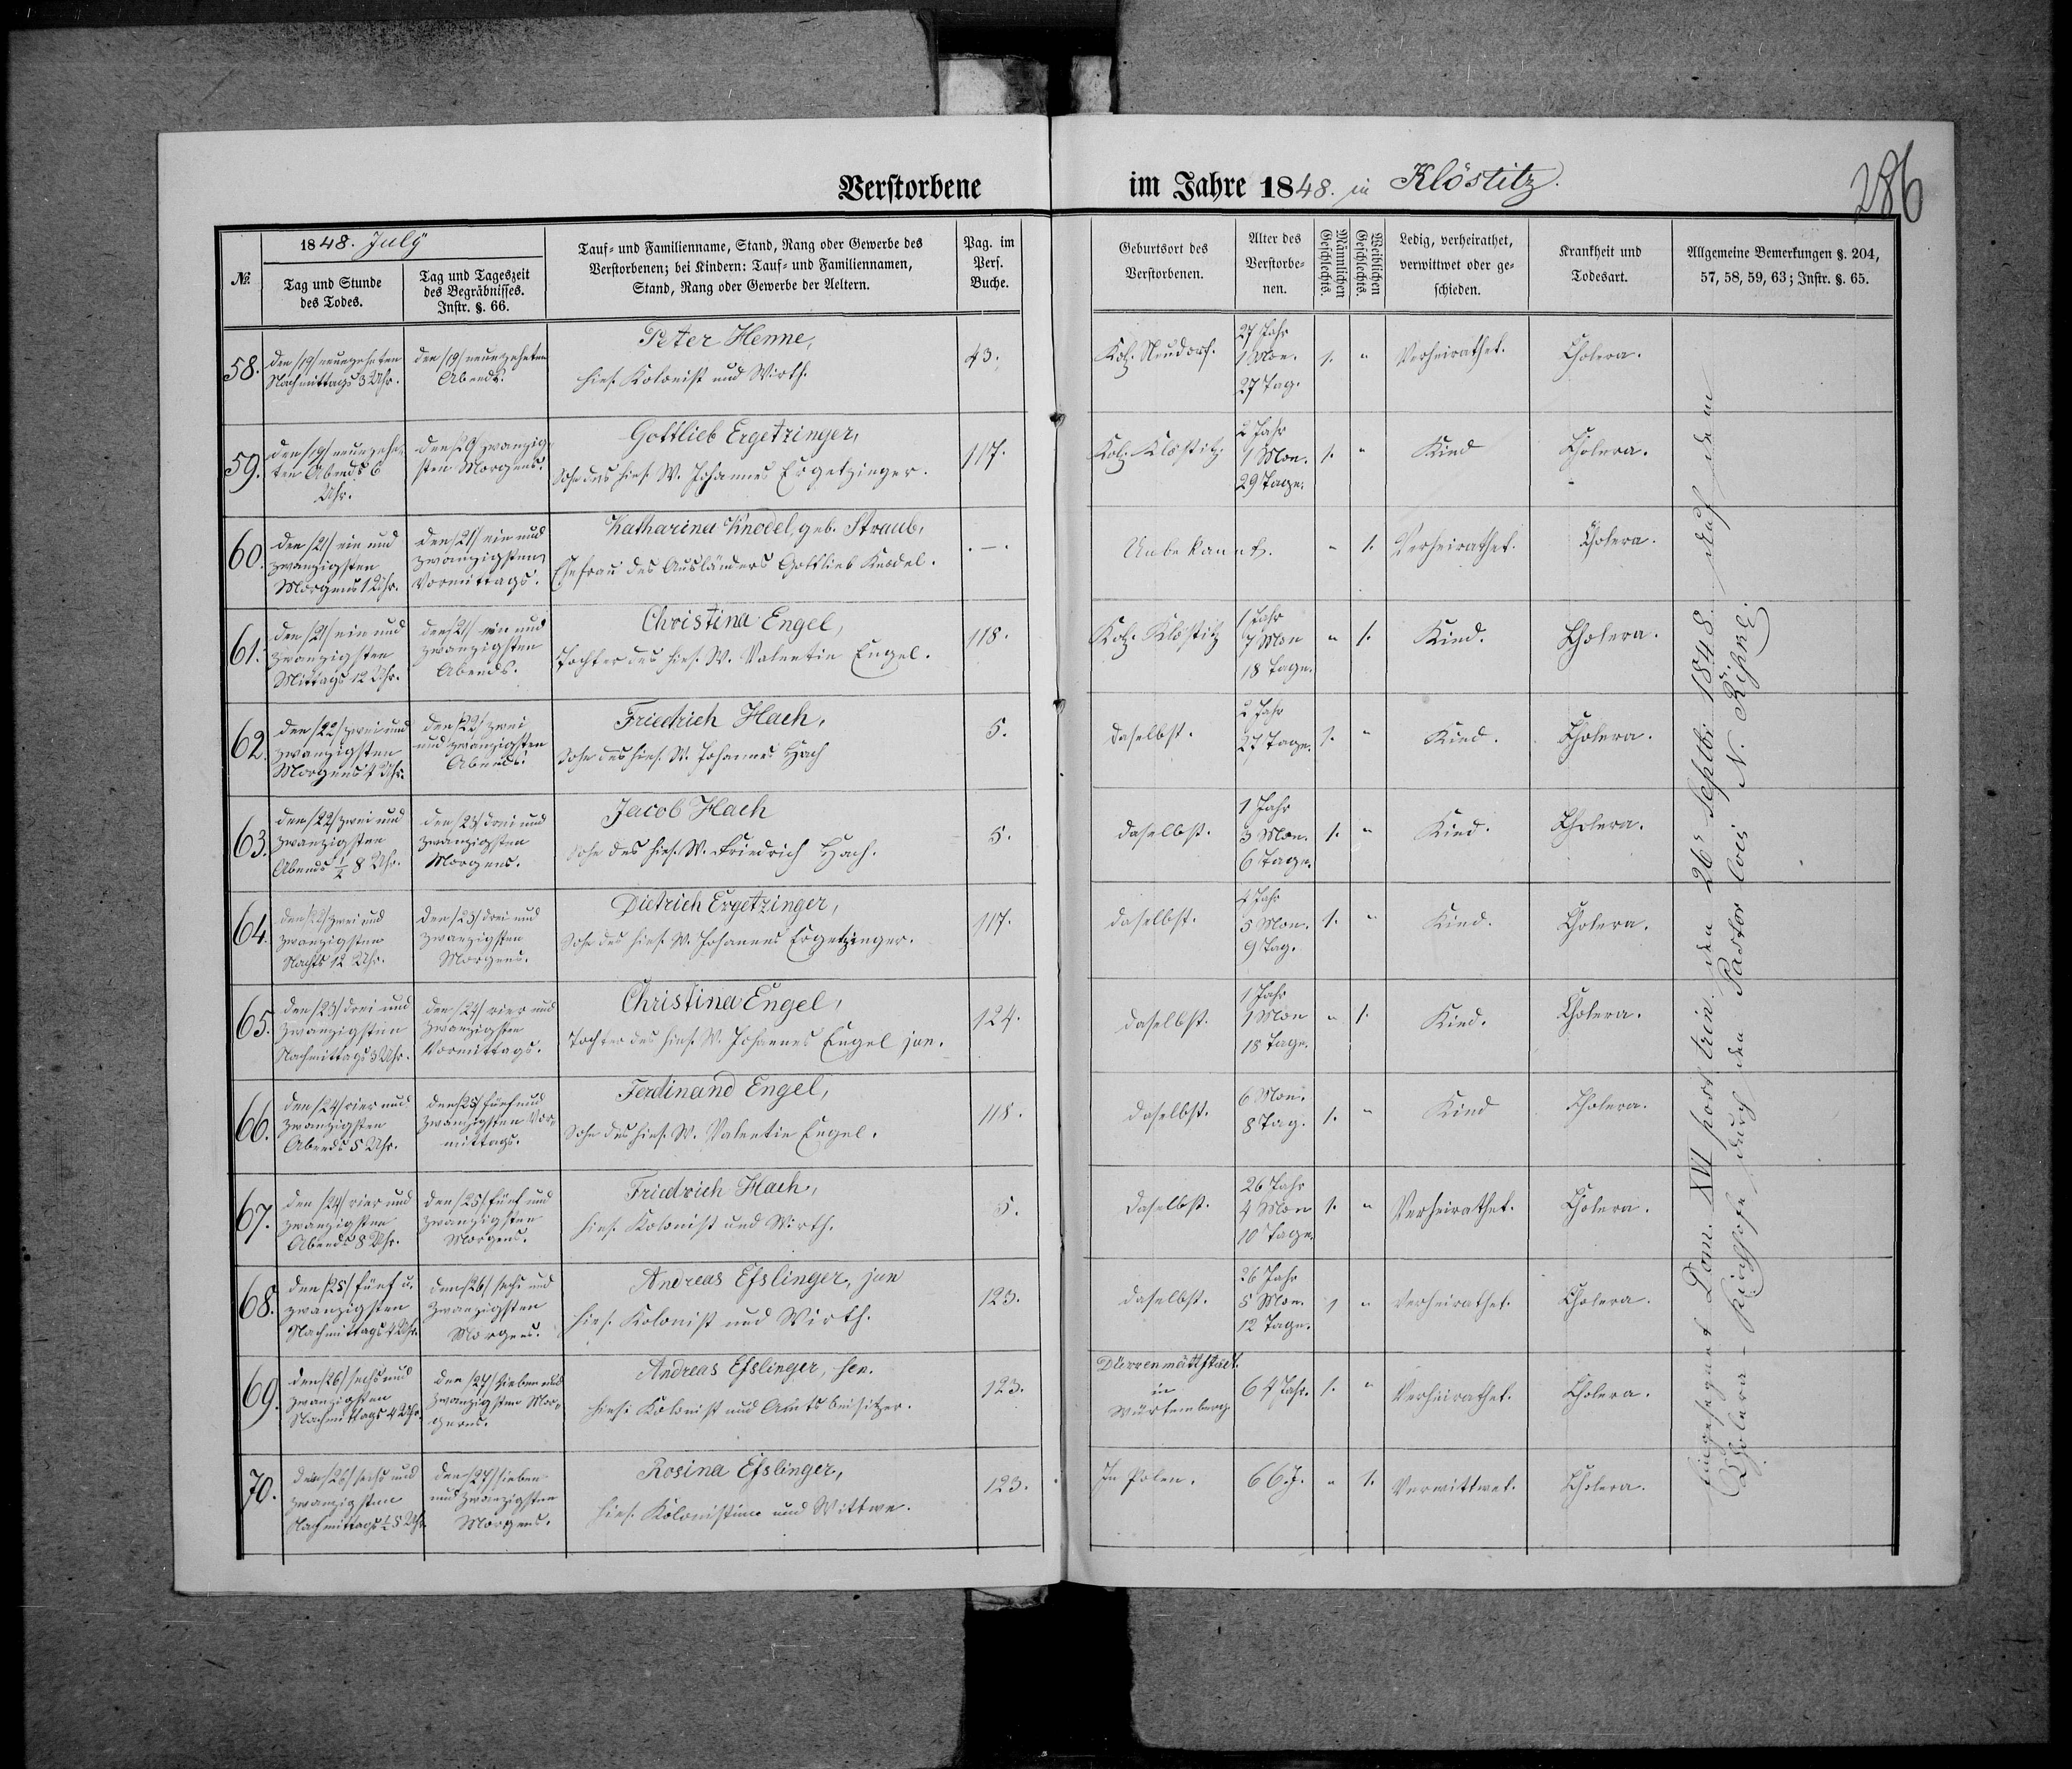 Verstorbene im Jahre 1848. in Klöstitz.
286
№.
1848. July
Tag und Stunde
des Todes.
Tag und Tageszeit
des Begräbnisses.
Instr. §. 66.
Tauf- und Familienname, Stand, Rang oder Gewerbe des
Verstorbenen; bei Kindern: Tauf- und Familiennamen,
Stand, Rang oder Gewerbe der Aeltern.
Pag. im
Pers.
Buche.
Geburtsort des
Verstorbenen.
Alter des
Verstorbe-
nen.
Männlichen
Geschlechts.
Weiblichen
Geschlechts.
Ledig, verheirathet,
verwittwet oder ge-
schieden.
Krankheit und
Todesart.
Allgemeine Bemerkungen §. 204,
57, 58, 59, 63; Instr. §. 65.
58.
den /19/ neunzehnten
Nachmittags 3 Uhr.
den /19/ neunzehnten
Abends.
Peter Henne,
hies. Kolonist und Wirth.
43.
Kol. Neudorf.
27 Jahr
1 Mon.
27 Tag.
1.
"
Verheirathet.
Cholera.
59.
den /19/ neunzehn-
ten Abends 6
Uhr.
den /20/ zwanzig-
sten Morgens.
Gottlieb Ergetzinger,
Sohn des hies. W. Johannes Ergetzinger.
117.
Kol. Klöstitz
2 Jahr
1 Mon.
29 Tage.
1.
"
Kind
Cholera.
60.
den /21/ ein und
zwanzigsten
Morgens 1 Uhr.
den /21/ ein und
zwanzigsten
Vormittags.
Katharina Knodel, geb. Straub,
Ehefrau des Ausländers Gottlieb Knodel.
. — .
Unbekannt.
"
1.
Verheirathet.
Cholera.
61.
den /21/ ein und
zwanzigsten
Mittags 12 Uhr.
den /21/ ein und
zwanzigsten
Abends.
Christina Engel,
Tochter des hies. W. Valentin Engel.
118.
Kol. Klöstitz
1 Jahr
7 Mon
18 Tage.
"
1.
Kind.
Cholera.
62.
den /22/ zwei und
zwanzigsten
Morgens 4 Uhr.
den /22/ zwei
und zwanzigsten
Abends.
Friedrich Hach,
Sohn des hies. W. Johannes Hach
5.
daselbst.
2 Jahr
27 Tage.
1.
"
Kind.
Cholera.
63.
den /22/ zwei und
zwanzigsten
Abends ½ 8 Uhr.
den /23/ drei und
zwanzigsten
Morgens.
Jacob Hach
Sohn des hies. W. Friedrich Hach.
5.
daselbst.
1 Jahr
3 Mon.
6 Tage.
1.
"
Kind.
Cholera.
64.
den /22/ zwei und
zwanzigsten
Nachts 12 Uhr.
den /23/ drei und
zwanzigsten
Morgens.
Dietrich Ergetzinger,
Sohn des hies. W. Johannes Ergetzinger.
117.
daselbst.
4 Jahr
5 Mon.
9 Tag.
1.
"
Kind.
Cholera.
65.
den /23/ drei und
zwanzigsten
Nachmittags 3 Uhr.
den /24/ vier und
zwanzigsten
Vormittags.
Christina Engel,
Tochter des hies. W. Johannes Engel jun.
124.
daselbst.
1 Jahr
1 Mon
18 Tage.
"
1.
Kind.
Cholera.
66.
den /24/ vier und
zwanzigsten
Abends 5 Uhr.
den /25/ fünf und
zwanzigsten Vor-
mittags.
Ferdinand Engel,
Sohn des hies. W. Valentin Engel.
118.
daselbst.
6 Mon.
8 Tag.
1.
"
Kind
Cholera.
67.
den /24/ vier und
zwanzigsten
Abends 8 Uhr.
den /25/ fünf und
zwanzigsten
Morgens.
Friedrich Hach,
hies. Kolonist und Wirth.
5.
daselbst.
26 Jahr
4 Mon
10 Tage.
1.
"
Verheirathet.
Cholera.
68.
den /25/ fünf u.
zwanzigsten
Nachmittags 4 Uhr.
den /26/ sechs und
zwanzigsten
Morgens.
Andreas Eßlinger, jun
hies. Kolonist und Wirth.
123.
daselbst.
26 Jahr
5 Mon.
12 Tage.
1
"
Verheirathet.
Cholera.
69.
den /26/ sechs und
zwanzigsten
Nachmittags 4 Uhr
den /27/ sieben und
zwanzigsten Mor-
gens.
Andreas Eßlinger, sen.
hies. Kolonist und Amtsbeisitzer.
123.
Dürrenmättstädt.
in
Würtemberg.
64 Jahr.
1.
"
Verheirathet.
Cholera.
70.
den /26/ sechs und
zwanzigsten
Nachmittags ½ 5 Uhr
den /27/ sieben
und zwanzigsten
Morgens.
Rosina Eßlinger,
hies. Kolonistin und Wittwe.
123.
In Polen.
66 J.
"
1.
Verwittwet.
Cholera.
Eingesegnet Dom. XVI post trin. den 26n Septbr. 1848. auf dem
Cholera-Kirchhofe durch den Pastor loci N.